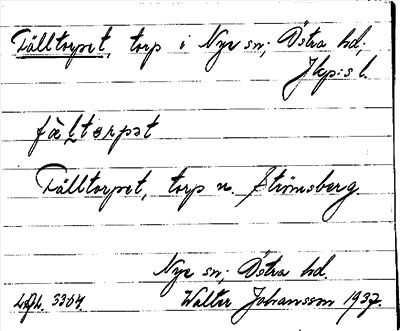 Fälltorpet, torp i Nye sn; Östra hd;
Jkp:s l.
fältorpət
Fälltorpet, torp u. Strömsberg
Nye sn; Östra hd.
3304. Walter Johansson 1937.